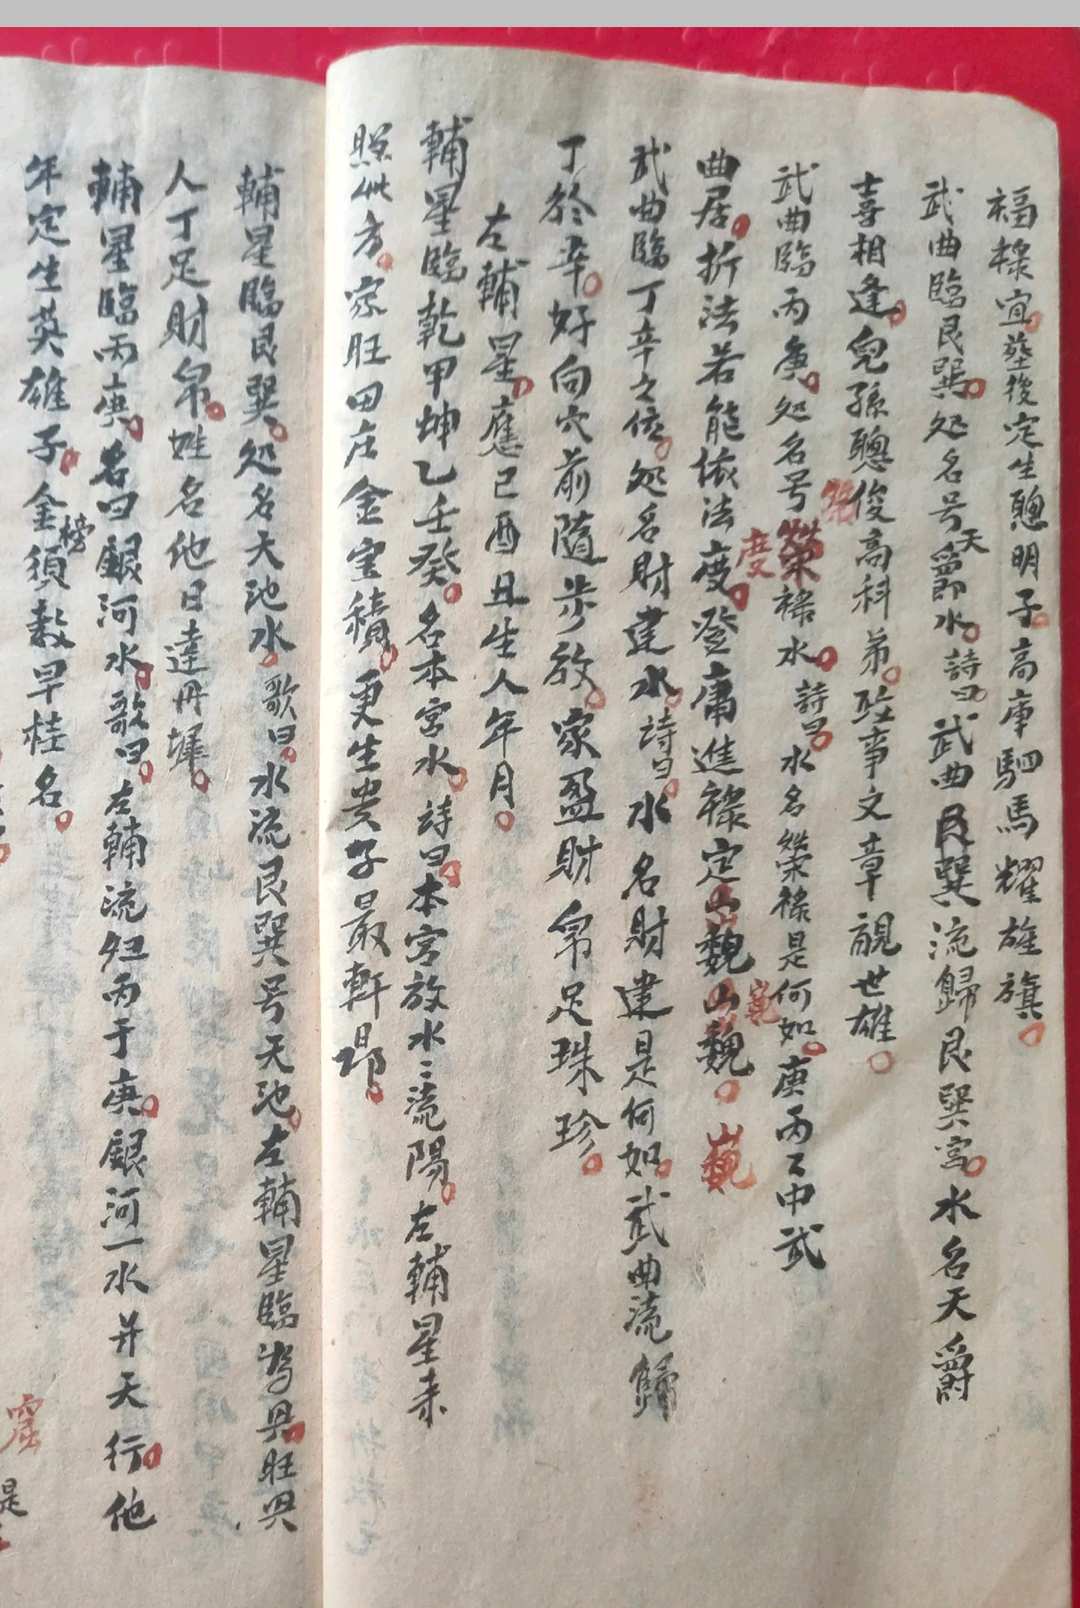 福祿宜。塟後定生聰明子。高車駟馬耀雄旗。
武曲臨艮巽。処名号天爵水。詩曰。武曲艮巽流歸艮巽宮。水名天爵
喜相逢。兒孫聰俊高科弟。在事文章覩世雄。
武曲臨丙庚。処名号榮祿水。詩曰。水名榮祿是何如。庚丙丁中武
曲居。折法若能依法度。登庸進祿定山魏山魏。巍
度
武曲臨丁辛之位。処名財建水。詩曰。水名財建是何如。武曲流歸
丁於辛。好向穴前隨步放。家盈財帛足珠珍。
左輔星。應巳酉丑生人年月。
輔星臨乾甲坤乙壬癸。名本宮水。詩曰。本宮放水〻流陽。左輔星来
照此方。家旺田庄金宝積。更生贵子最軒昂。
輔星臨艮巽。処名天池水。歌曰。水流艮巽号天池。左輔星臨当興。旺興
人丁足財帛。姓名他日達丹墀。
輔星臨丙庚。名曰銀河水。歌曰。左輔流归丙于庚。銀河一水并天行。他
年定生英雄子。金榜須教早桂名。
窟
是